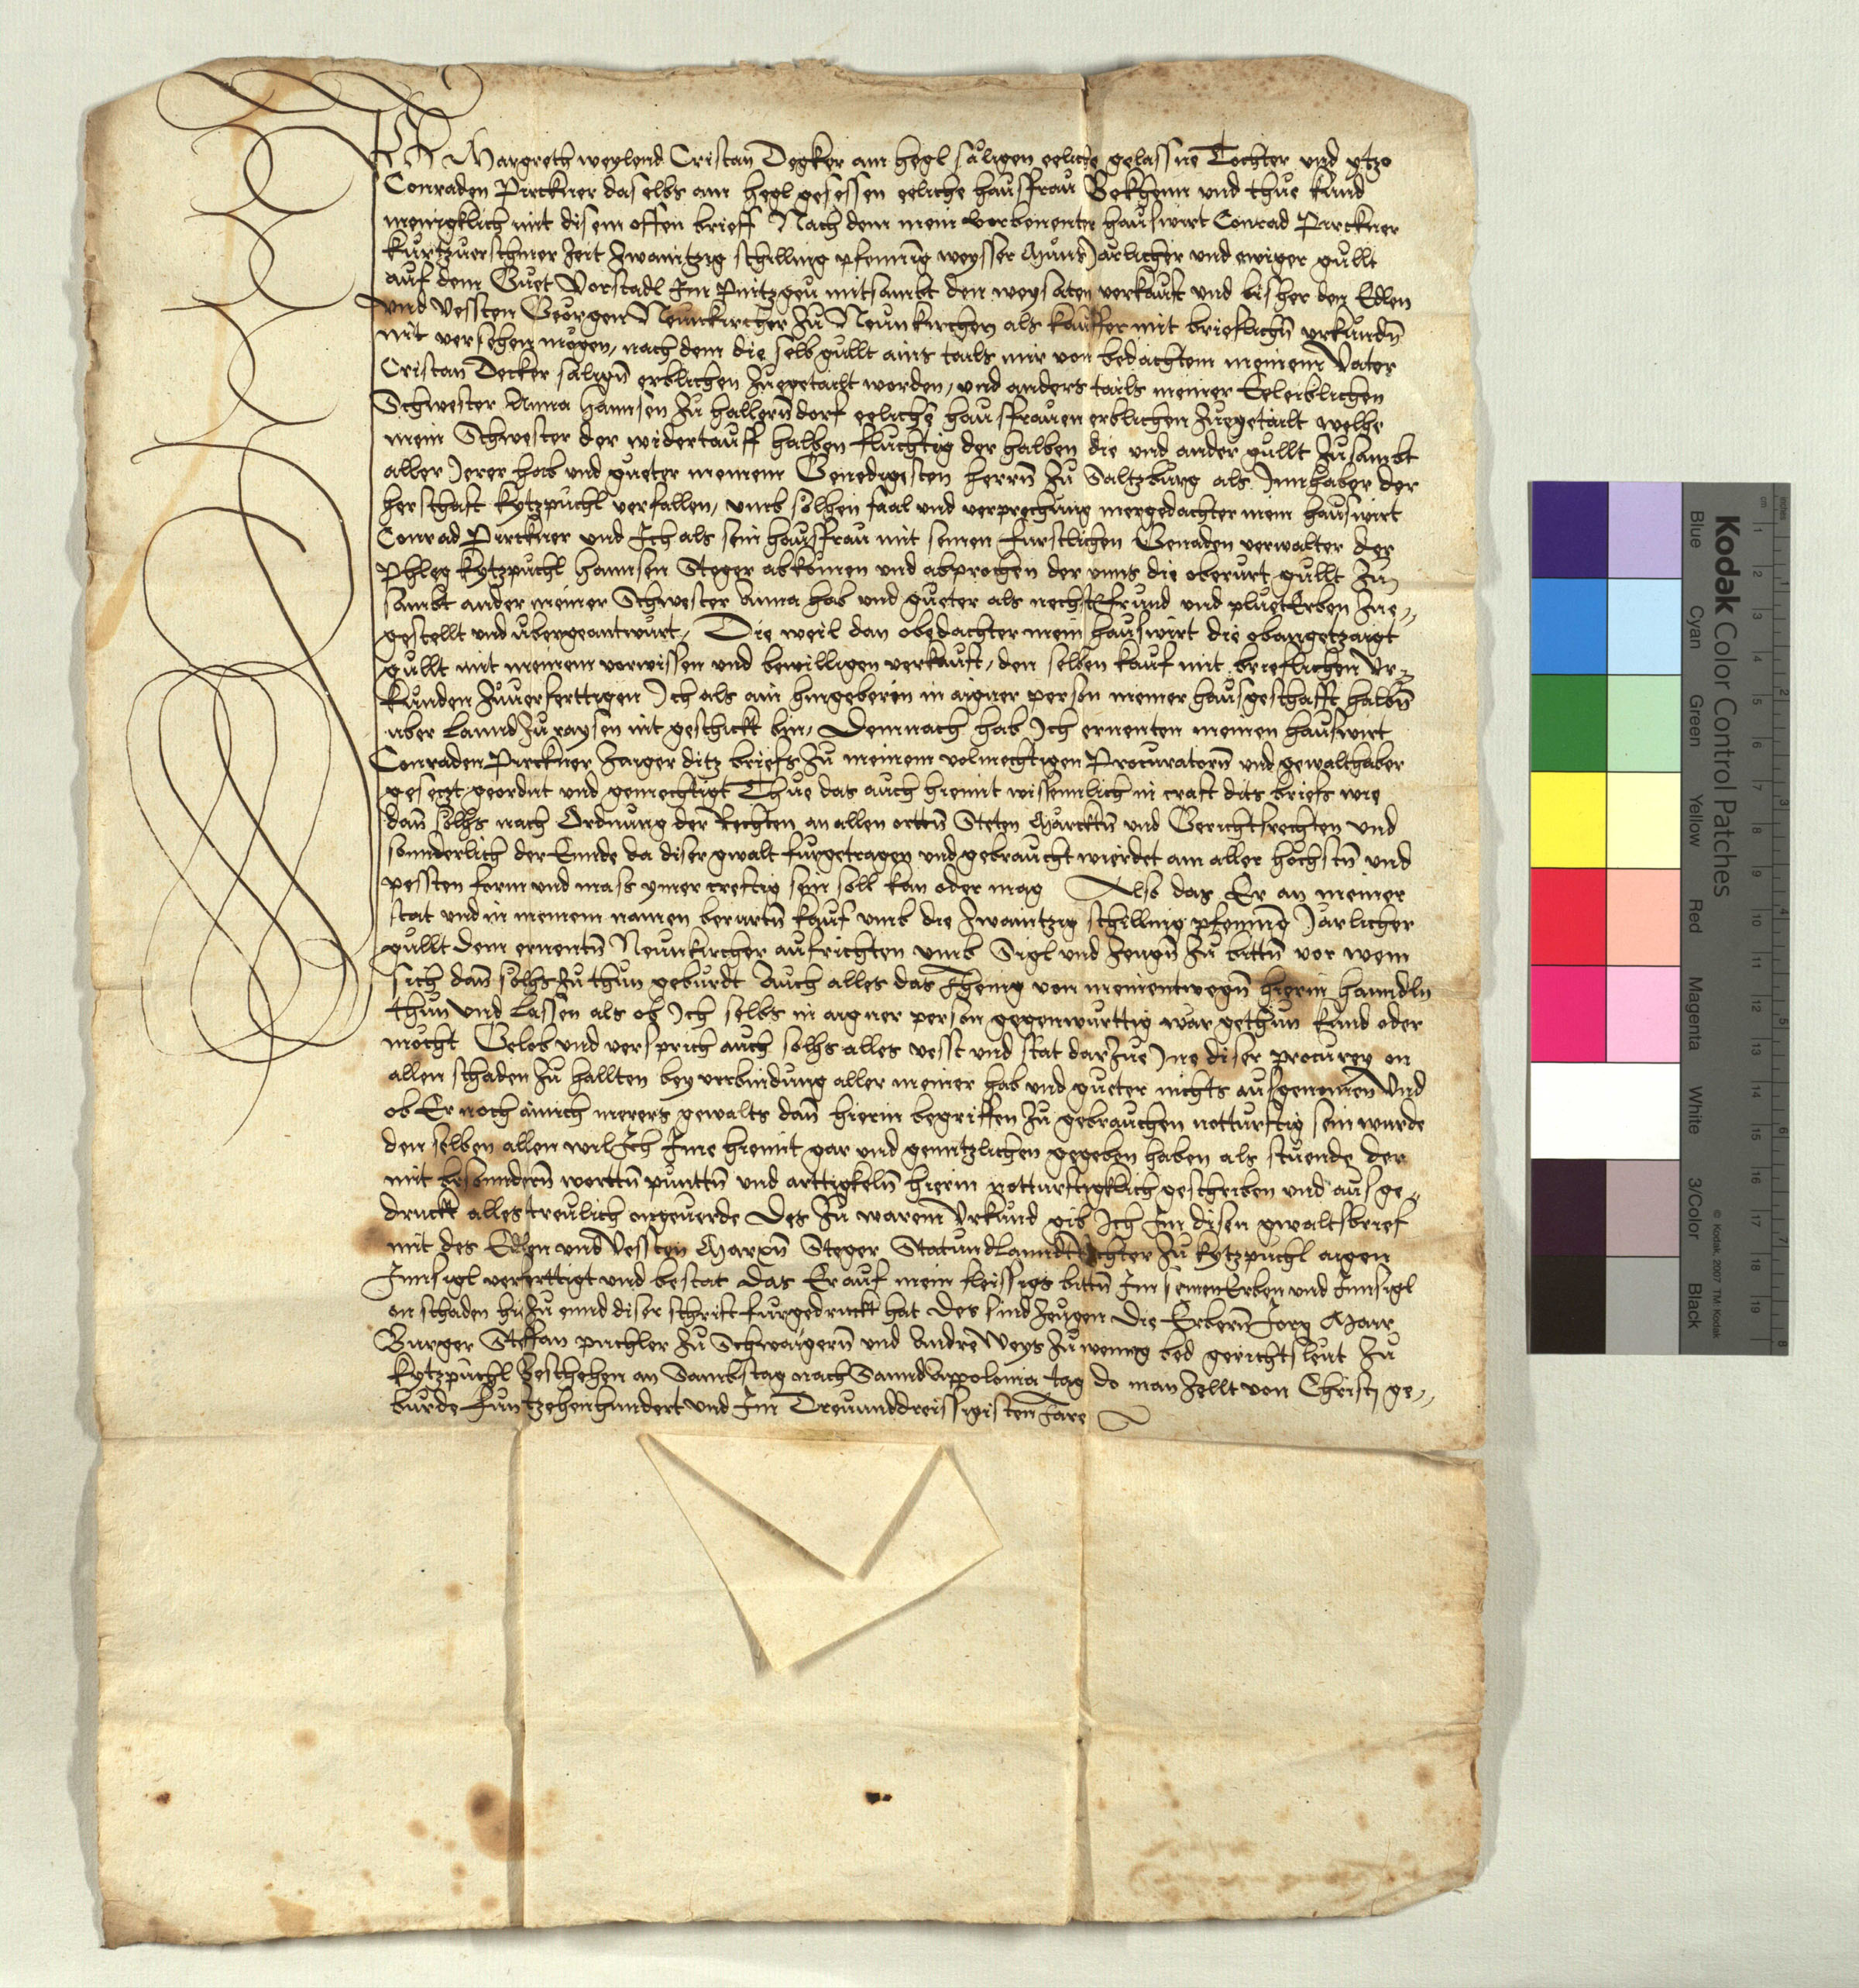 Ich Margreth weylend Cristan Degker am hegl säligen eeliche gelassne Tochter und ytzo
Conraden Pirckner daselbs am hegl gesessen eeliche hausfrau Bekhenn und thue kund
menigklich mit disem offen brieff Nach dem mein vorbenenter hauswirt Conrad Pirckner
kurtzverschiner Zeit zwaintzig schilling pfenning weysser Münß Järlicher und ewiger güllt
auf dem Guet Vorstadl Im Pintzgeu mitsambt den weysaten verkauft und bisher den Edlen
und vessten Georgen Neunkircher zu Neunkirchen als kauffer mit brieflichn̄ urkundn̄
nit versehen mögen, nach dem die selb güllt ains tails mir von bedachtem meinem Vater
Cristan Decker sälign̄ erblichen zuegetailt worden, und anders tails meiner Eeleiblichen
Schwester Anna hannsen zu hallerndorf eeliche hausfrauen erblichen zuegetailt welhe
mein Schwester der widertauff halben fluchtig der halben die und ander güllt zusambt
aller Jrer hab und gueter meinem Genedigisten herrn̄ zu Saltzburg als Innhaber der
herschaft kytzpüchl verfallen, umb solhen faal und verprechung mergedachter mein hauswirt
Conrad Pirckner und Ich als sein hausfrau mit seinen furstlichen Genaden verwalter der
Phleg kytzpüchl hannsen Steger abkomen und abprochen der unns die oberürt güllt zu
sambt ander meiner Schwester Anna hab und gueter als nechst frund und pluet Erben zue-
gestellt und übergeantwurt, Die weil dan obedachter mein hauswirt die obangetzaigt
güllt mit meinem vorwissen und bewilligen verkauft, den selben kauf mit brieflichen Ur-
kunden zuverferttigen Ich als ain hingeberin in aigner person meiner hausgeschafft halbn̄
uber Lannd zu raysen nit geschickt bin, Demnach hab Ich ernenten meinen hauswirt
Conraden Pirckner Zaiger ditz briefs zu meinem volmechtigen Procuratorn̄ und gewalthaber
gesetzt geordnt und gemechtigt Thue das auch hiemit wissennlich in craft dits briefs wie
dan̄ solhs nach Ordnung der Rechten an allen orttn̄ Steten Märcktn̄ und Gerichtsrechten und
sonnderlich der Ennde da diser gwalt furgetragen und gebraucht wierdet am aller höchstn̄ und
pessten form und mass ymer creftig sein soll kan oder mag Also das Er an meiner
stat und in meinem namen berürtn̄ kauf umb die zwaintzig schilling pfenning Järlicher
güllt dem ernentn̄ Neunkircher aufrichten umb Sigl und Zeugn̄ zu bittn̄ vor wem
sich dan̄ solhs zu thun gebürdt Auch alles das Jhenig von meinentwegn̄ hierin hanndln
thun und Lassen als ob Ich selbs in aigner person gegenwürttig wär gethun kund oder
möcht Gelob und versprich auch solhs alles vesst und stat dar zue Ine diser procurey on
allen schaden zu hallten bey verbindung aller meiner hab und gueter nichts ausgenomen Und
ob Er noch ainich merers gewalts dan̄ hierin begriffen zu gebrauchen notturftig sein wurde
den selben allen wil Ich Ime hiemit gar und genntzlichen gegeben haben als stuende der
mit besonndern̄ worttn̄ punttn̄ und arttigkeln̄ hierin notturftigklich geschriben und ausge-
druckt alles treulich ongeverde Des zu warem Urkund gib Ich Im disen gwaltsbrief
mit des Edlen und Vessten Marxn̄ Steger Stat und Lanndtrichter zu kytzpüchl aigen
Innsigl verferttigt und bestat das Er auf mein fleissigs bittn̄ Im seinen Erben und Innsigl
on schaden hiezu ennd diser schrift furgedruckt hat Des sind Zeugen Die Erbern̄ Jörg Marr
Burger Steffan puchler zu Schwaigern̄ und Andre Weys zu weng bed gerichtsleut zu
kytzpüchl Beschehen an Sambstag nach Sannd Appolonia tag do man zellt von Christj ge-
burde Funtzehenhundert und Im Dreuunddreissigisten Jare
Kodak Color Control Patches
Blue Cyan Green Yellow Red Magenta White 3/Color Black
© Kodak, 2007 TM: Kodak
cm 1 2 3 4 5 6 7 8 9 10 11 12 13 14 15 16 17 18 19
inches 1 2 3 4 5 6 7 8